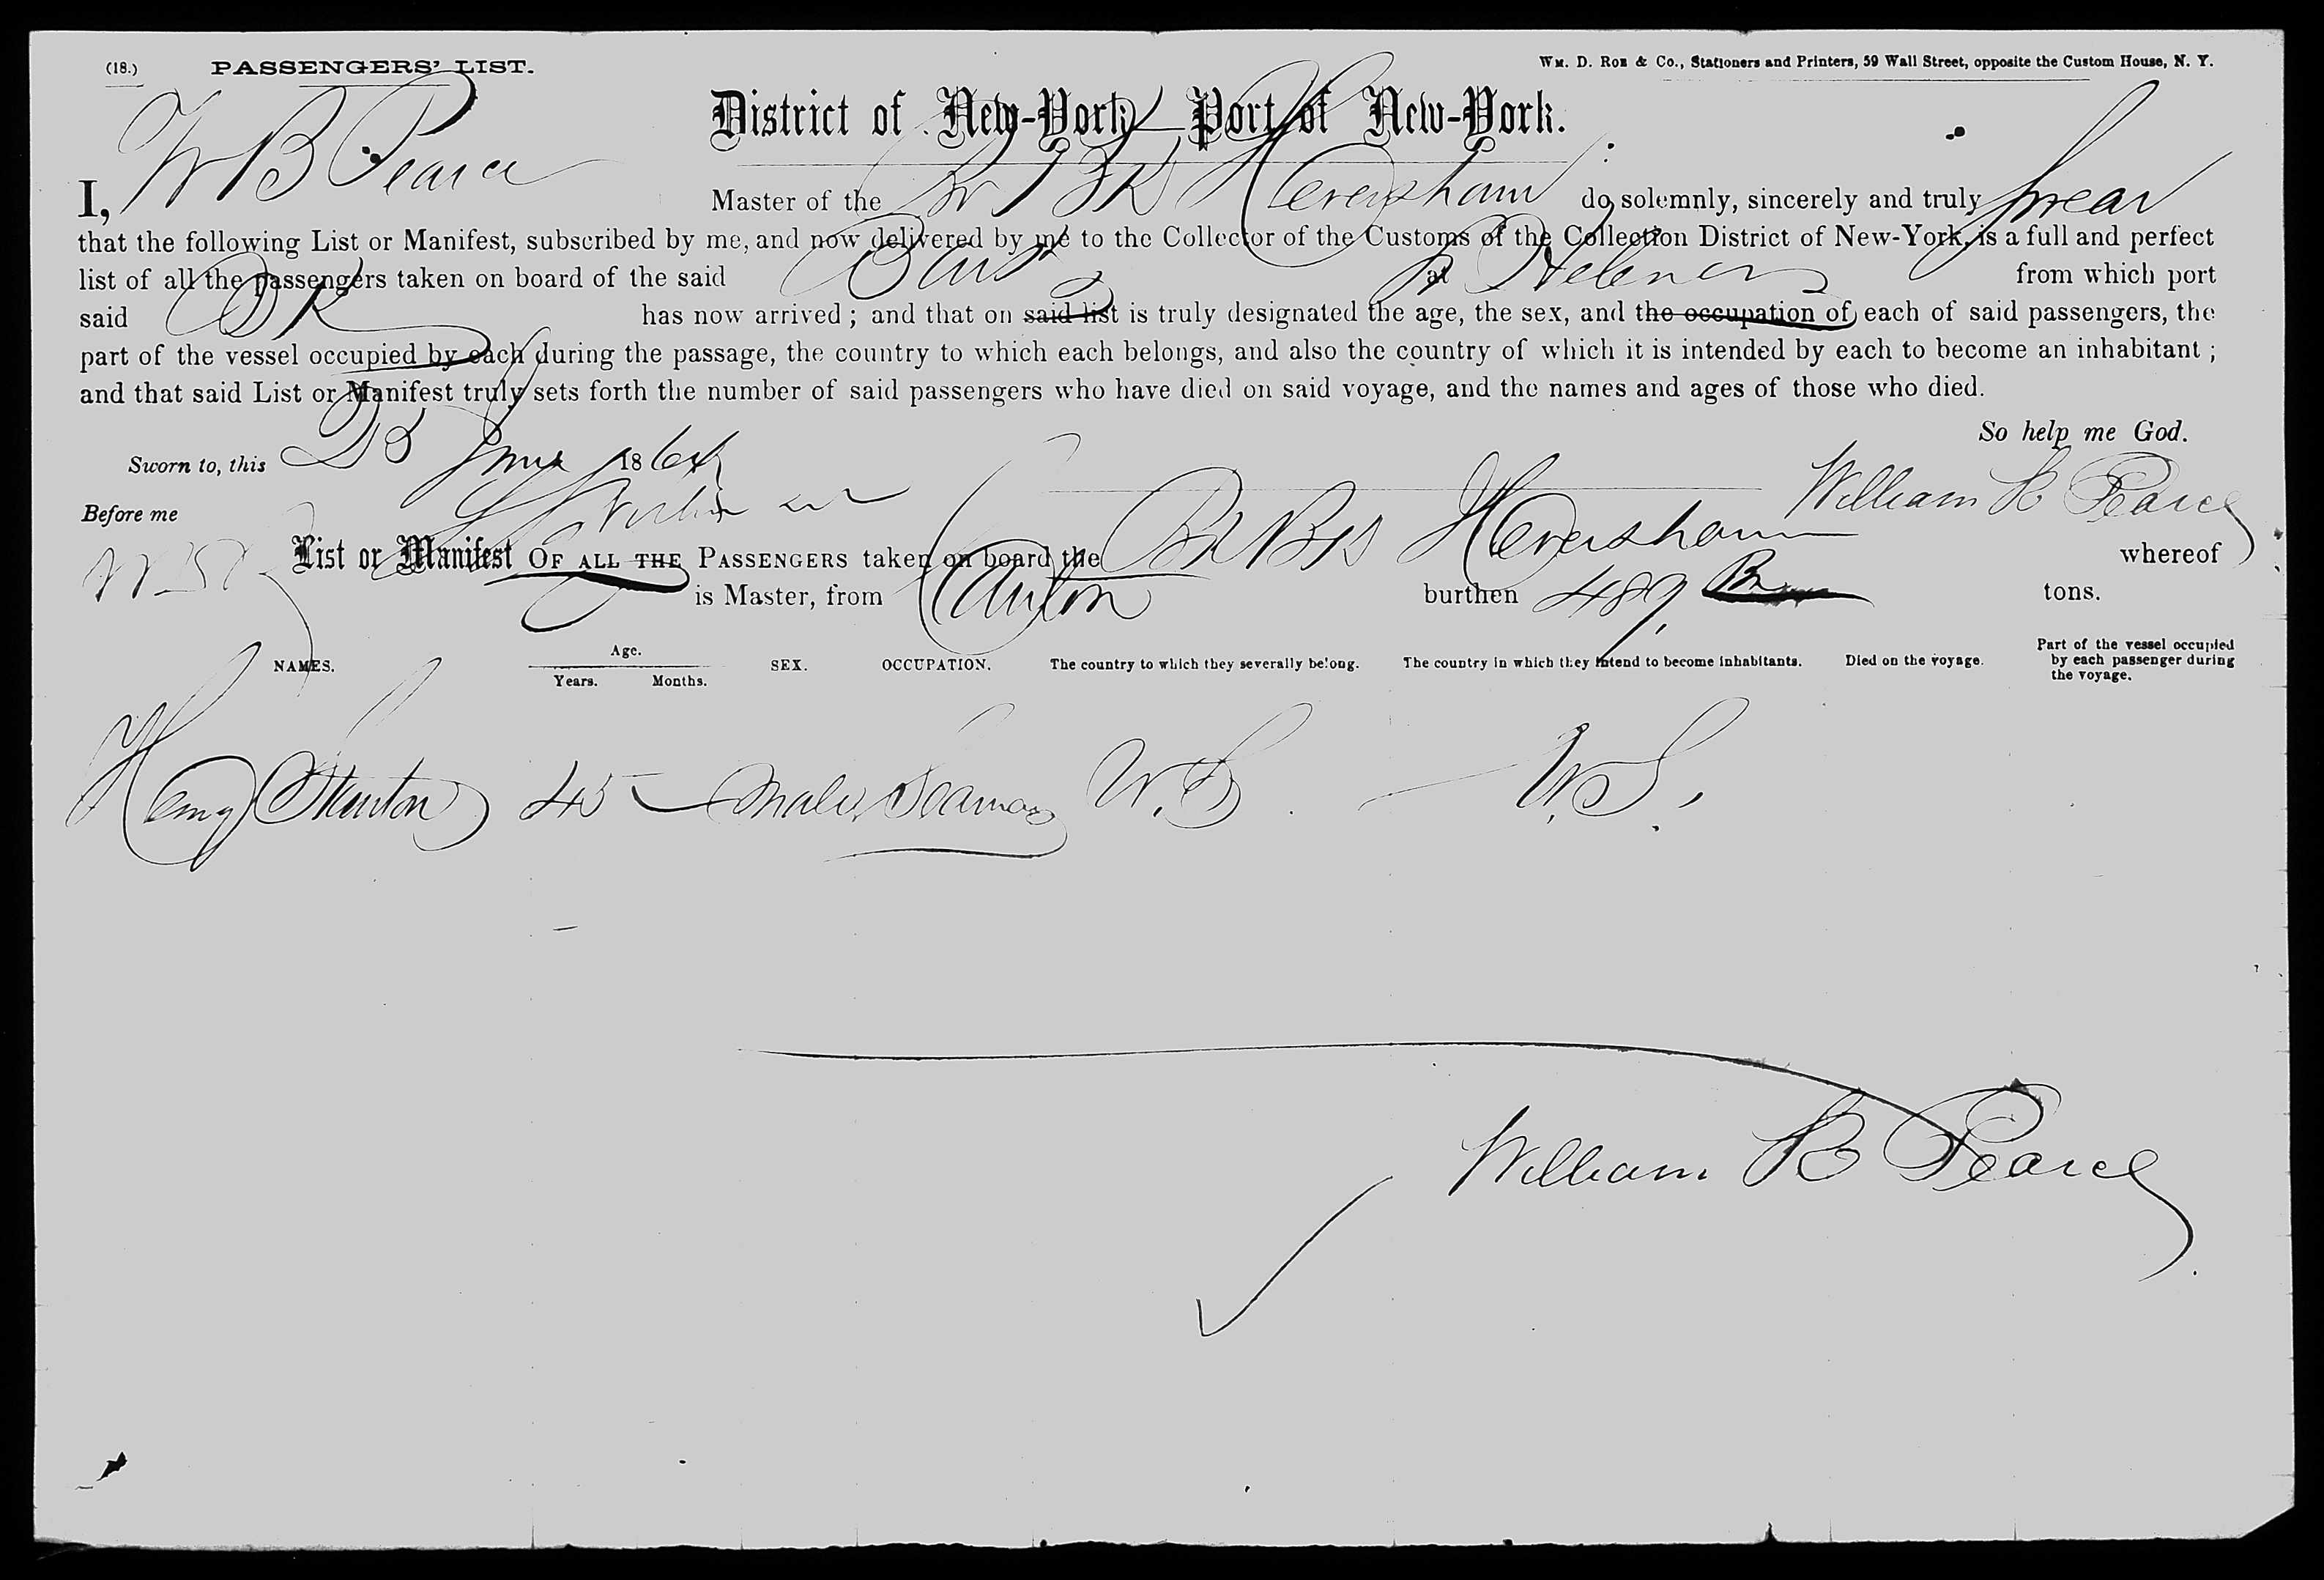 (18.) PASSENGERS' LIST. Wm. D. Roe & Co., Stationers and Printers, 59 Wall Street, opposite the Custom House, N. Y.
District of New-York, Port of New-York.
I, W B Pearce Master of the Br BK Heversham do solemnly, sincerely and truly swear
that the following List or Manifest, subscribed by me, and now delivered by me to the Collector of the Customs of the Collection District of New-York, is a full and perfect
list of all the passengers taken on board of the said Bark at St Helena from which port
said BK has now arrived; and that on said list is truly designated the age, the sex, and the occupation of each of said passengers, the
part of the vessel occupied by each during the passage, the country to which each belongs, and also the country of which it is intended by each to become an inhabitant;
and that said List or Manifest truly sets forth the number of said passengers who have died on said voyage, and the names and ages of those who died.
So help me God.
Sworn to, this 23 June 1864
William B Pearce
Before me
List or Manifest OF ALL THE PASSENGERS taken on board the Br Bk Heversham whereof
W B P is Master, from Canton burthen 489 tons.
NAMES. Age. Years. Months. SEX. OCCUPATION. The country to which they severally belong. The country in which they intend to become inhabitants. Died on the voyage. Part of the vessel occupied by each passenger during the voyage.
Henry Stanton 45 Male Seaman U.S. U.S.
William B Pearce